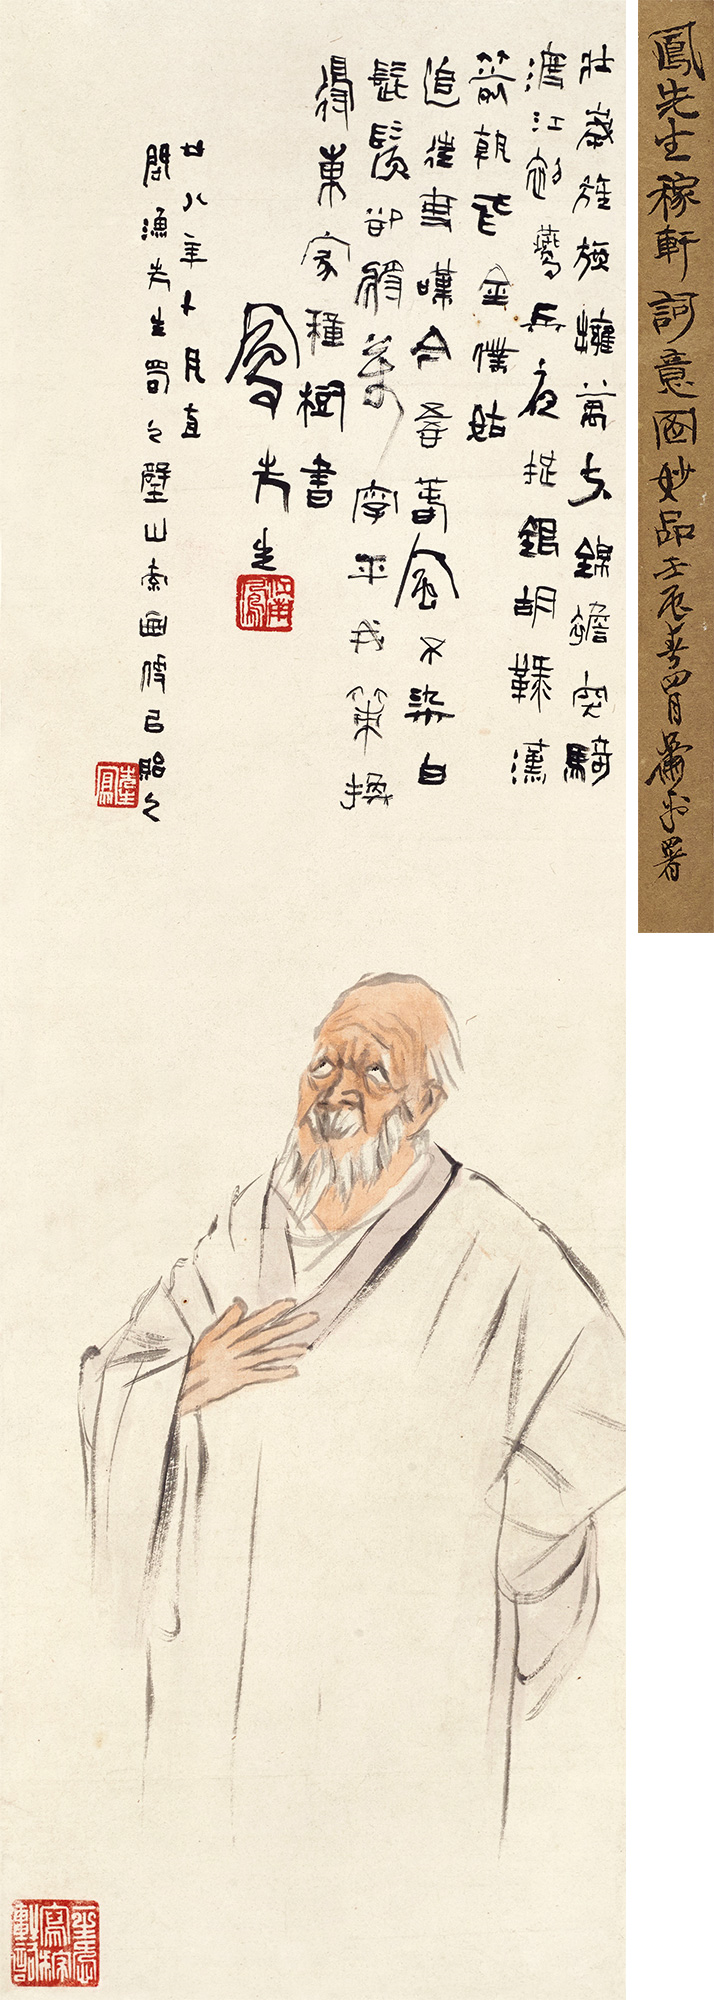 鳳先生稼軒詞意圖妙品壬辰春四月蕭平署
壯歲旌旗擁萬夫錦襜突騎
渡江初燕兵夜娖銀胡䩮漢
箭朝飛金僕姑
追往事嘆今吾春風不染白
髭鬚卻將萬字平戎策換
得東家種樹書
鳳先生
廿八年十月直
問漁先生蜀之璧山索畫便以貽之